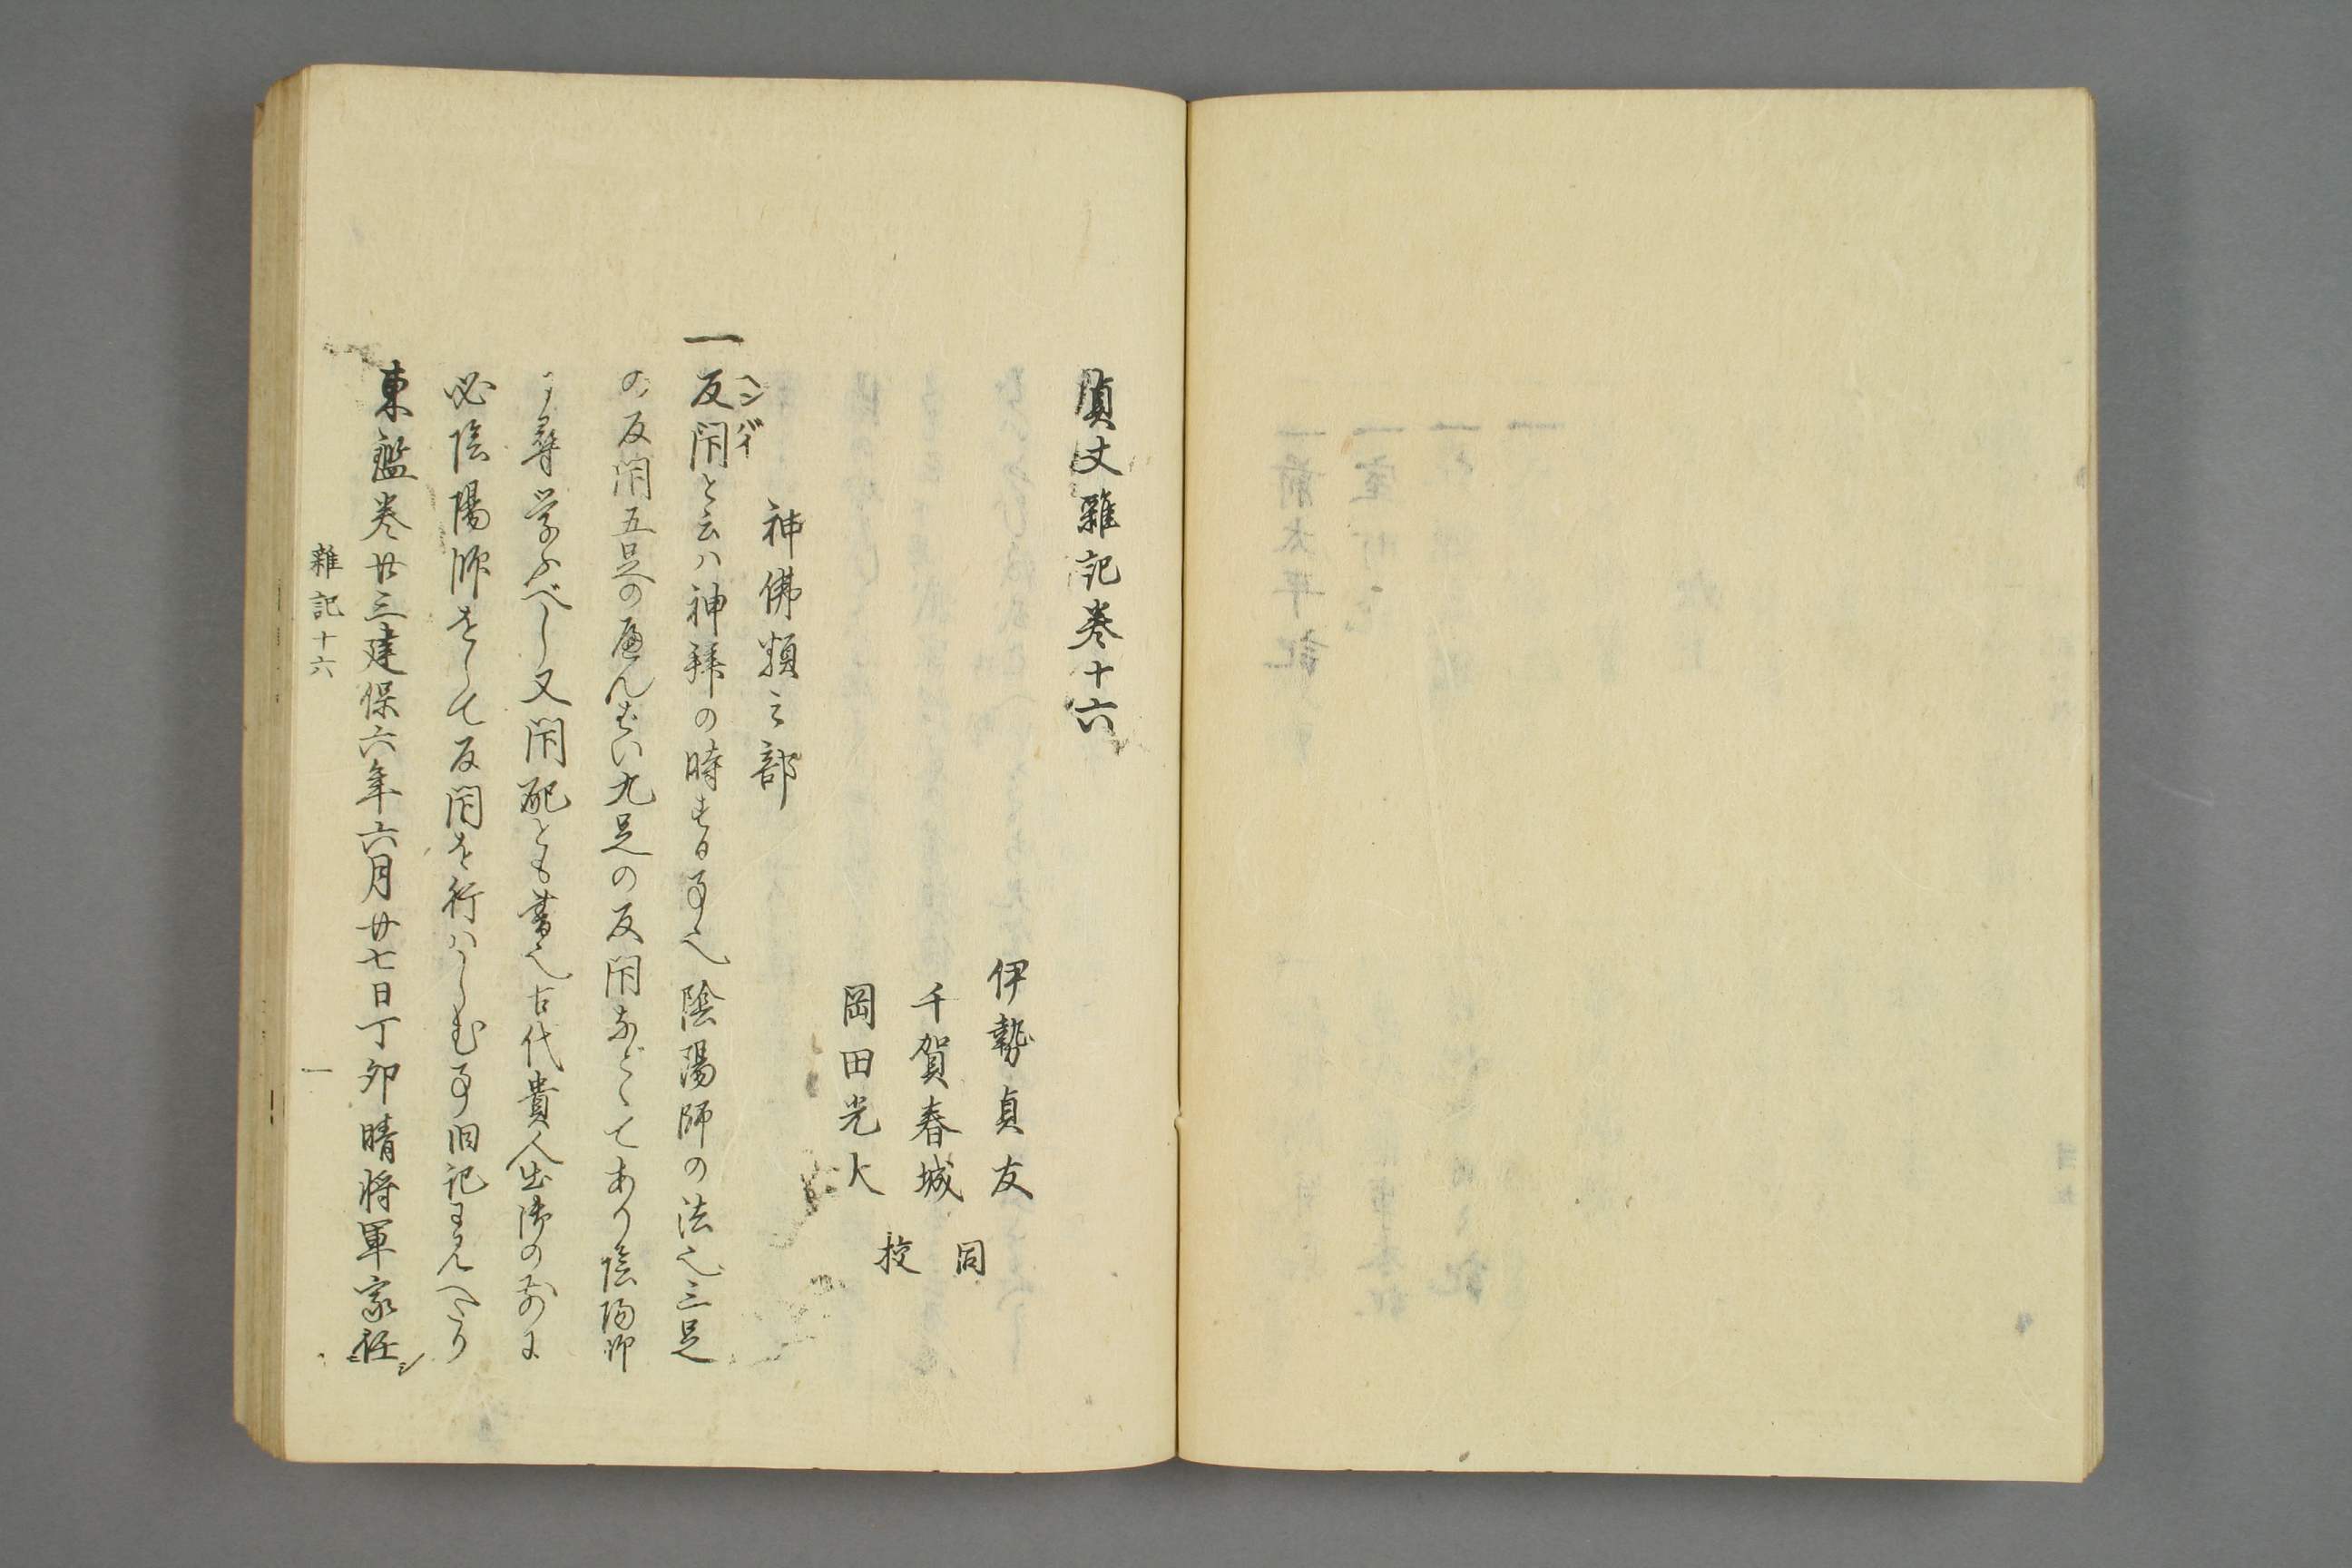 貞丈雜記巻十六
伊勢貞友
千賀春城
岡田光大
同校
神佛類之部
一反閇と云ハ神拝の時する事也陰陽師の法也三足
ヘンバイ
の反閇五足のへんばい九足の反閇などゝてあり陰陽師
に尋学ふべし又閇配とも書也古代貴人出御の前に
必陰陽師をして反閇を行ハしむる事旧記に見へたり
東鑑巻廿三建保六年六月廿七日丁卯晴将軍家任
雜記十六
一